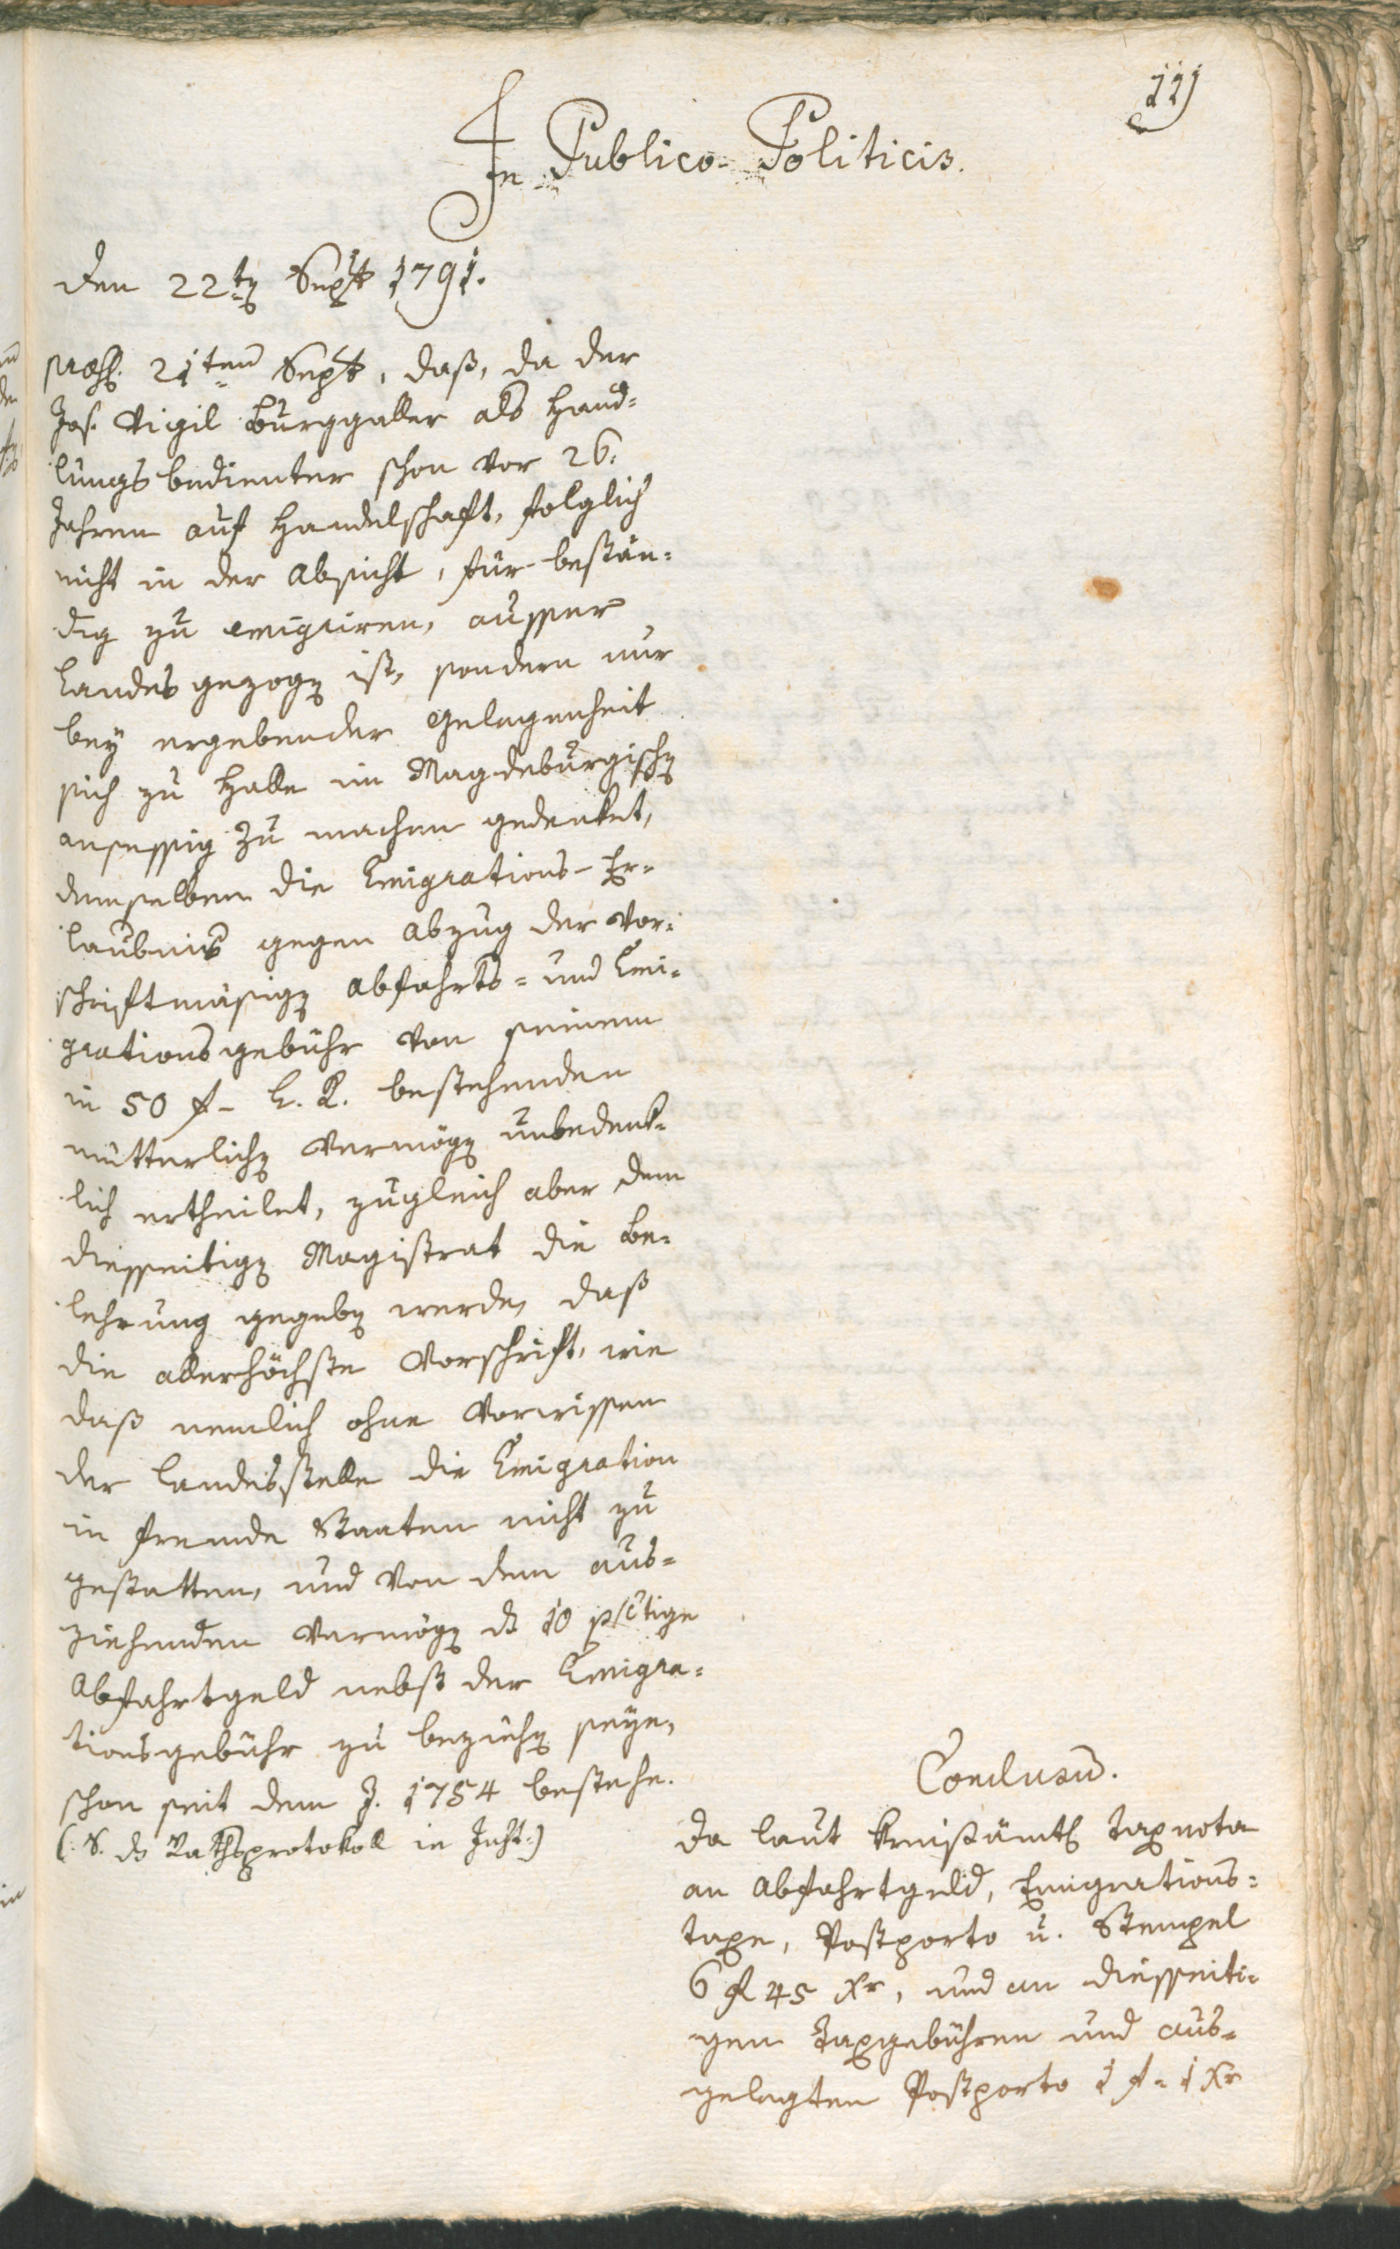 111
In Publico-Politicis.
den 22ten Sept 1791.
præs. 21ten Sept, daß, da der
Jos. Vigil Burggaller als Hand=
lungsbedienter schon vor 26.
Jahren auf Handelschaft, folglich
nicht in der Absicht, für bestän=
dig zu emigriren, ausser
Landes gezogen ist, sondern nur
bey ergebender Gelegenheit
sich zu Halle im Magdeburgischen
ansessig zu machen gedenket,
demselben die Emigrations-Er=
laubnis gegen Abzug der vor=
schriftmäsigen Abfahrts= und Emi=
grationsgebühr von seinem
in 50 f- bestehenden
mütterlichen Vermögen unbedenk=
lich ertheilet, zugleich aber dem
diesseitigen Magistrat die Be=
lehrung gegeben werde, daß
die allerhöchste Vorschrift, wie
daß nemlich ohne Vorwissen
der Landesstelle die Emigration
in fremde Staaten nicht zu
gestatten, und von dem aus=
ziehenden Vermögen ds 10 pctige
Abfahrtgeld nebst der Emigra=
tionsgebühr zu beziehen seye,
schon seit dem J. 1784 bestehe.
(: S. ds Rathsprotokoll in Just:)
Conclusum.
Da laut kreisämtl Taxnota
an Abfahrtgeld, Emigrations=
taxe, Postporto u. Stempel
6 f 45 xr, und an diesseiti=
gen Taxgebühren und aus=
gelegten Postporto 1 f- 1 xr